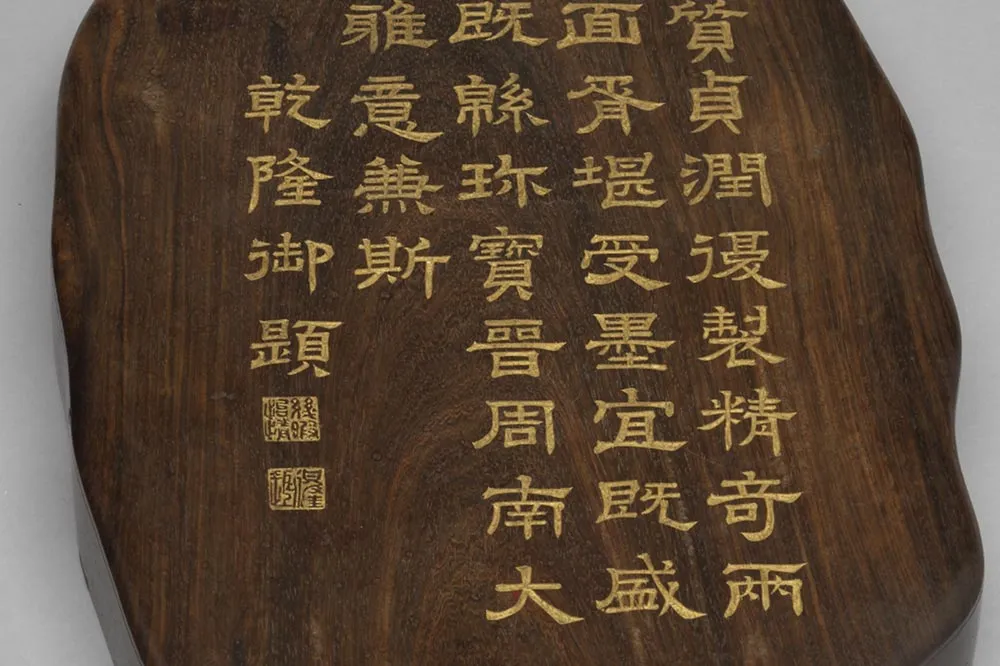 質貞潤復製精奇兩
面胥堪受墨宜既盛
既緜珍寶晉周南大
雅意兼斯
乾隆御題
幾暇怡情
得佳趣